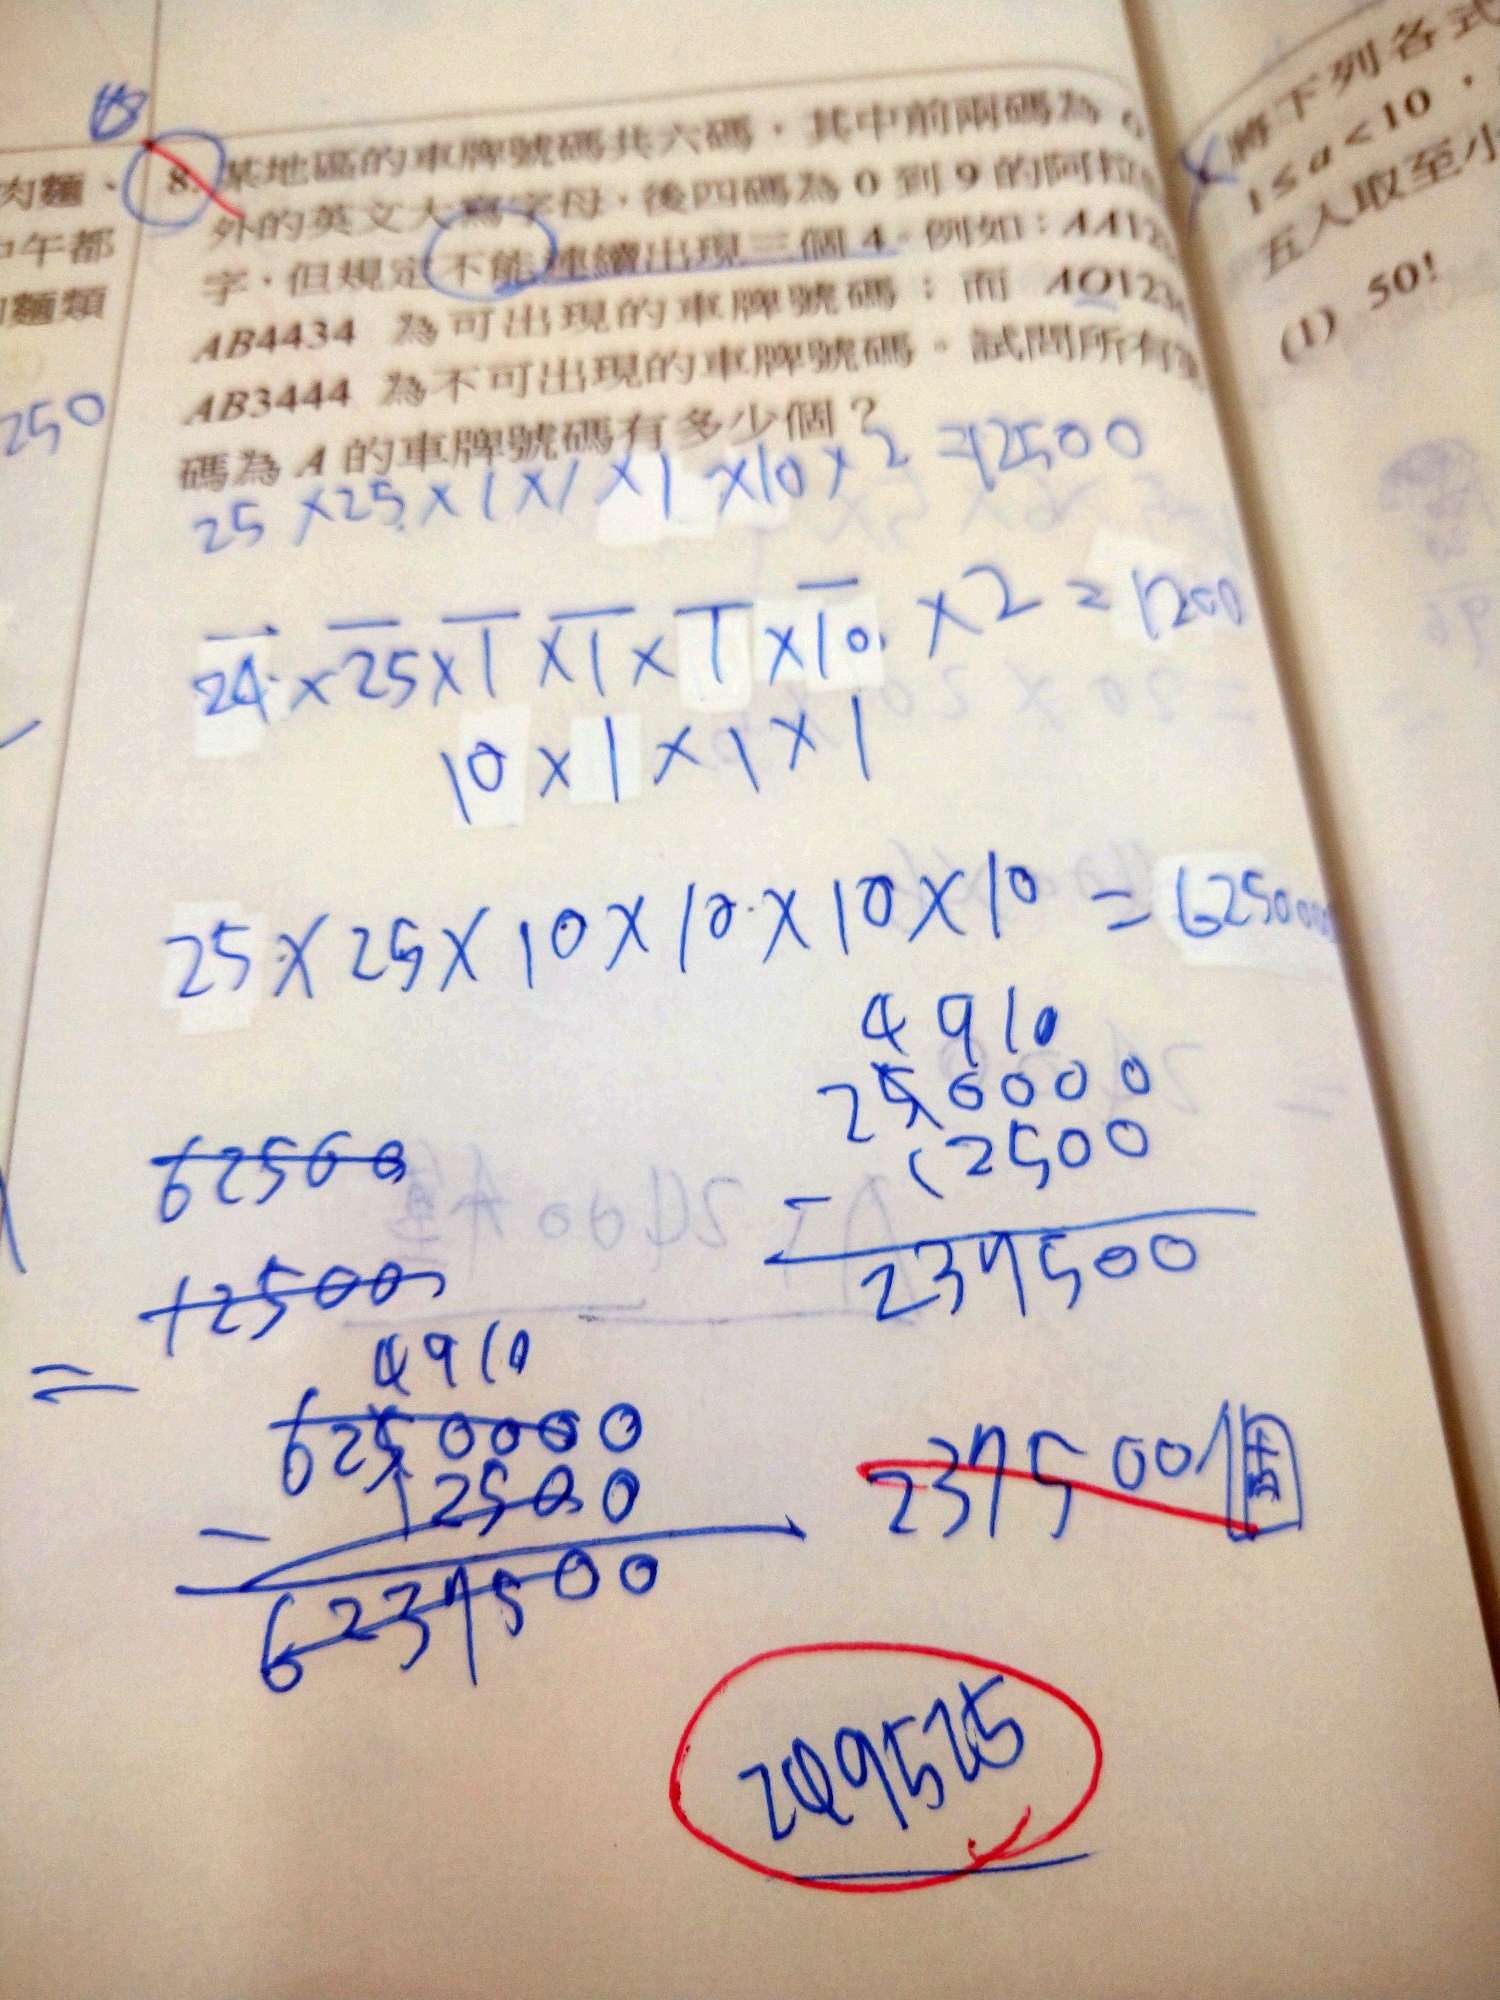 肉麵、
中午都
麵類
250
8. 某地區的車牌號碼共六碼，其中前兩碼為 O
外的英文大寫字母，後四碼為 0 到 9 的阿拉
字，但規定不能連續出現三個 4。例如：AA12
AB4434 為可出現的車牌號碼；而 AO1234
AB3444 為不可出現的車牌號碼。試問所有
碼為 A 的車牌號碼有多少個？
25 × 25 × 1 × 1 × 1 × 10 × 2 = 12500
24 × 25 × 1 × 1 × 1 × 10 × 2 = 1200
10 × 1 × 1 × 1
25 × 25 × 10 × 10 × 10 × 10 = 6250000
4 9 10
250000
12500
−
237500
62500
12500
=
4 9 10
6250000
12500
−
6237500
237500個
249525
將下列各式
1 ≤ a < 10，
五入取至小
(1) 50!